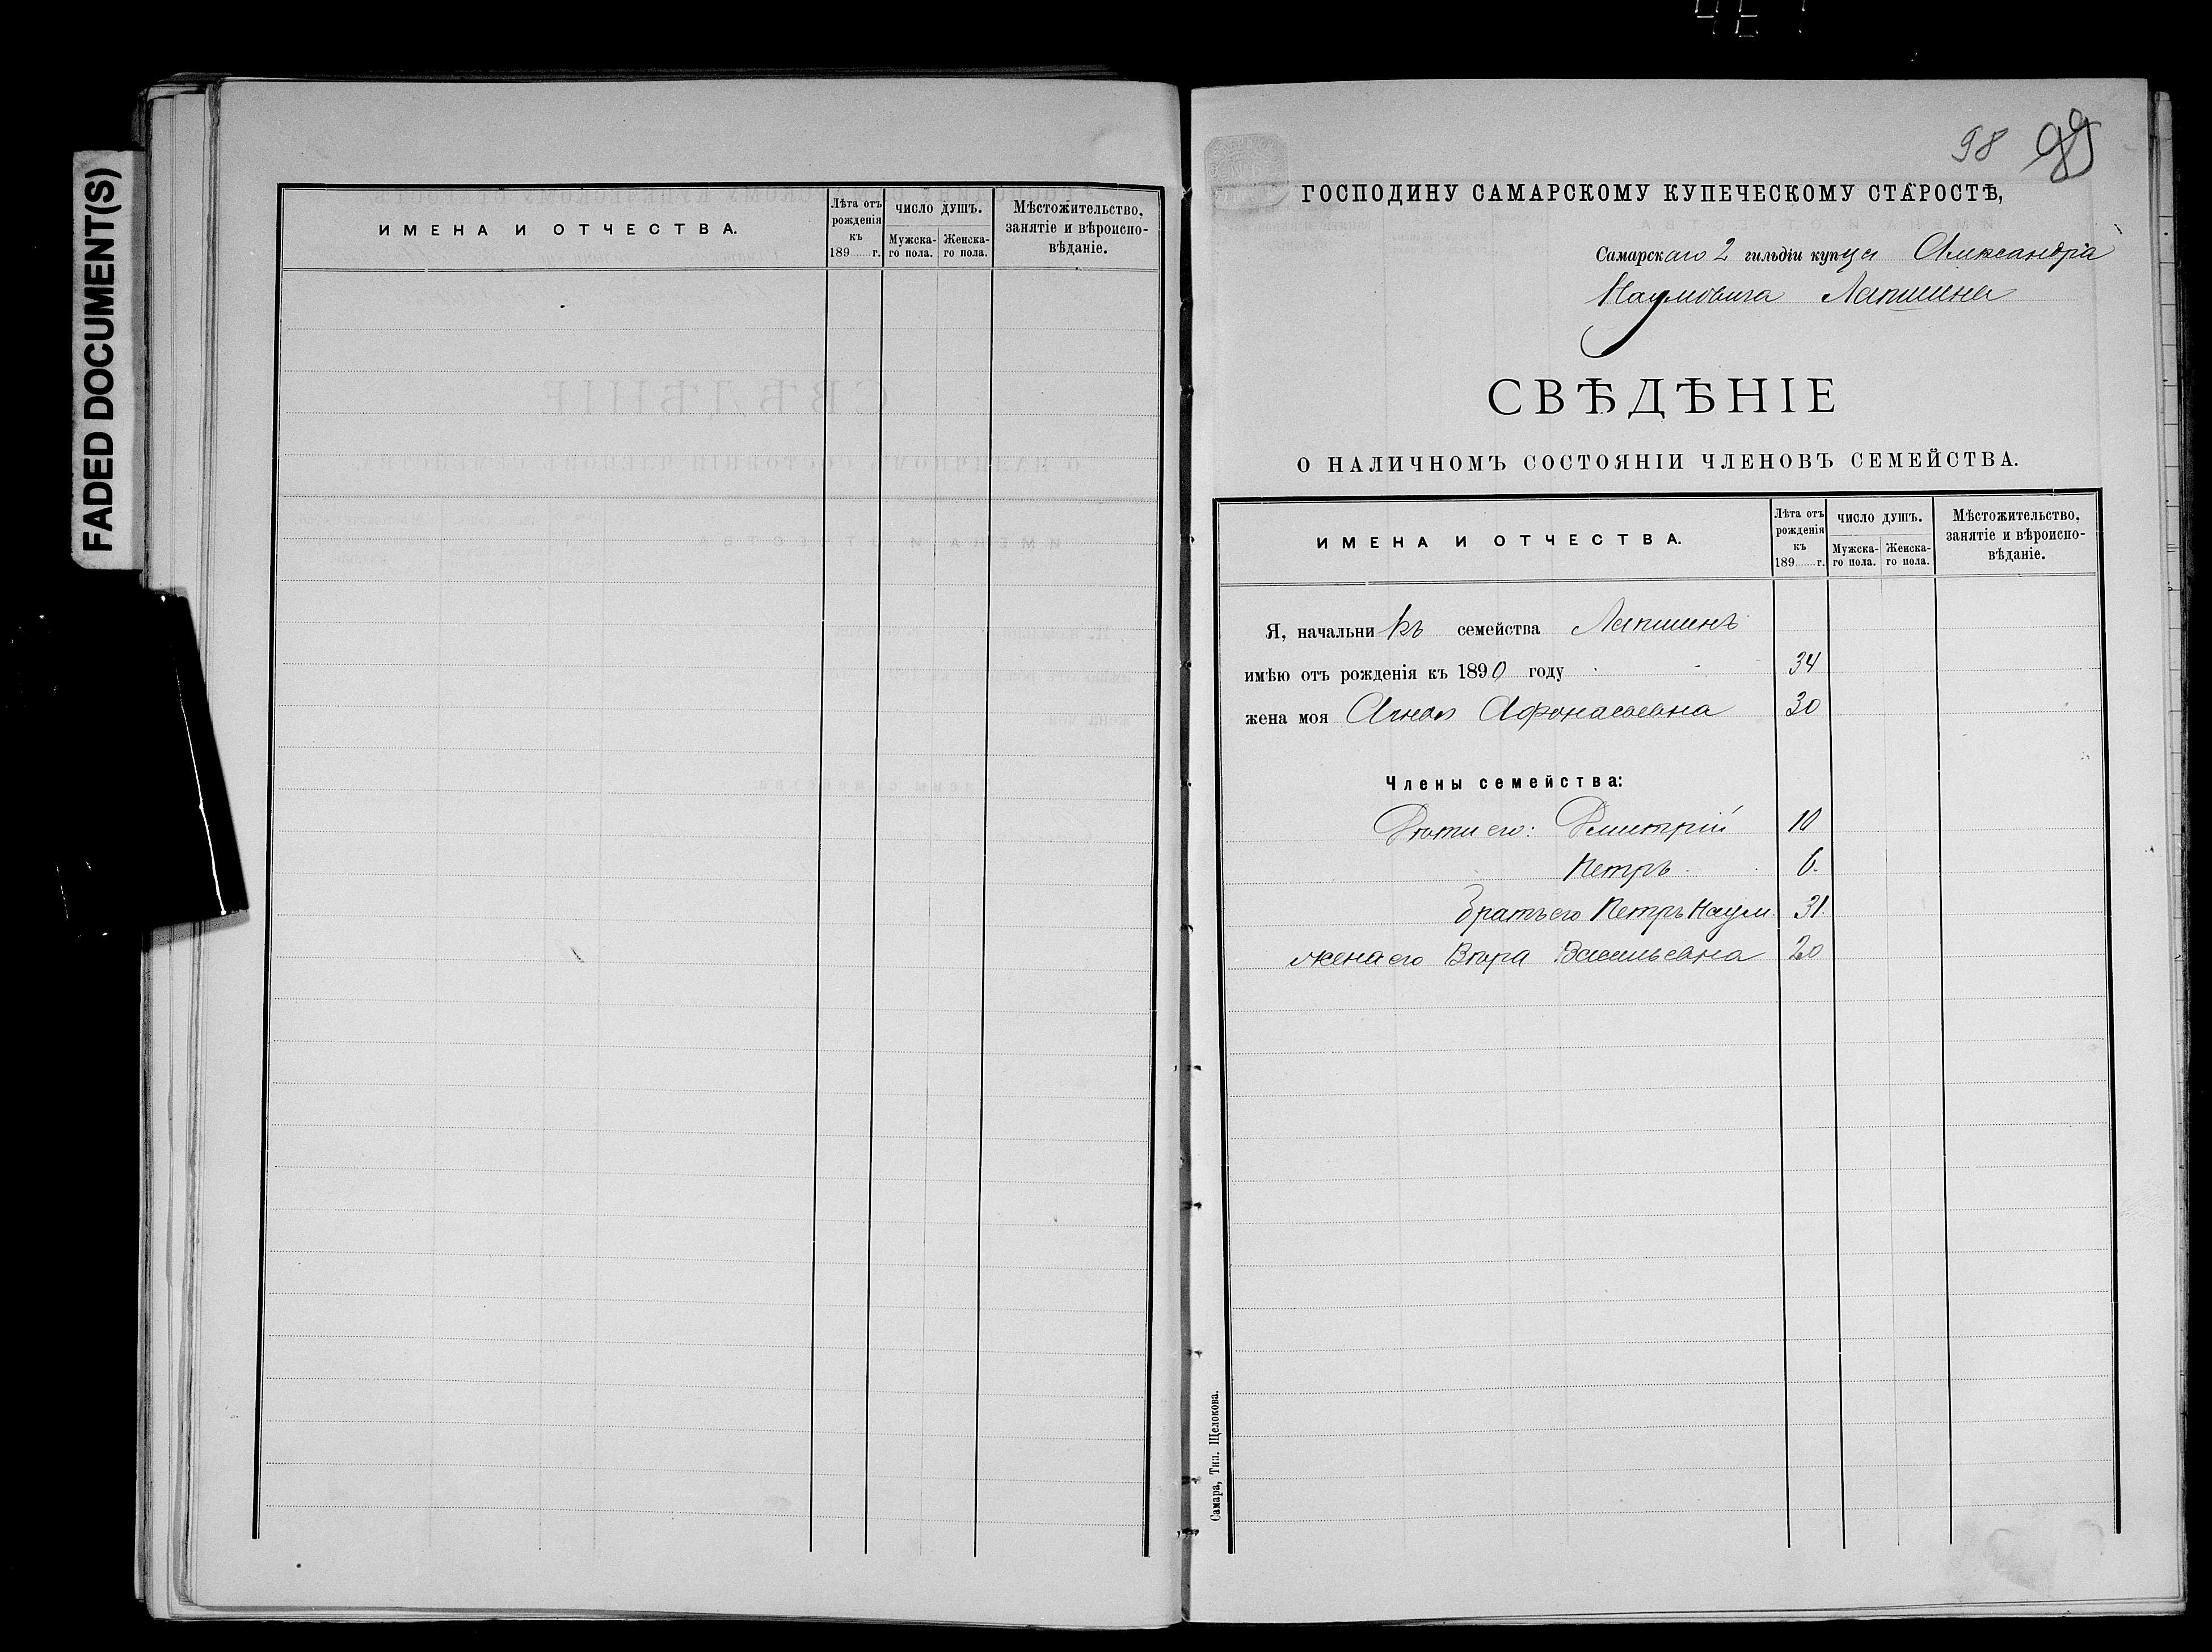 FADED DOCUMENT(S)
ИМЕНА И ОТЧЕСТВА.
Лѣта отъ рожденія къ 189......г.
ЧИСЛО ДУШЪ.
Мужска-го пола.
Женска-го пола.
Мѣстожительство, занятіе и вѣроиспо-вѣданіе.
98 99
ГОСПОДИНУ САМАРСКОМУ КУПЕЧЕСКОМУ СТАРОСТѢ,
Самарскаго 2 гильдіи купца Александра
Наумовича Лапшина
СВѢДѢНІЕ
О НАЛИЧНОМЪ СОСТОЯНІИ ЧЛЕНОВЪ СЕМЕЙСТВА.
ИМЕНА И ОТЧЕСТВА.
Лѣта отъ рожденія къ 189......г.
ЧИСЛО ДУШЪ.
Мужска-го пола.
Женска-го пола.
Мѣстожительство, занятіе и вѣроиспо-вѣданіе.
Я, начальникъ семейства Лапшинъ
имѣю отъ рожденія къ 1890 году 34
жена моя Афонасьевна 30
Члены семейства:
Дѣти его: Дмитрій 10
Петръ 6.
Братъ его Петръ Наум. 31.
жена его Вѣра Васильевна 20
Самара, Тип. Щелокова.